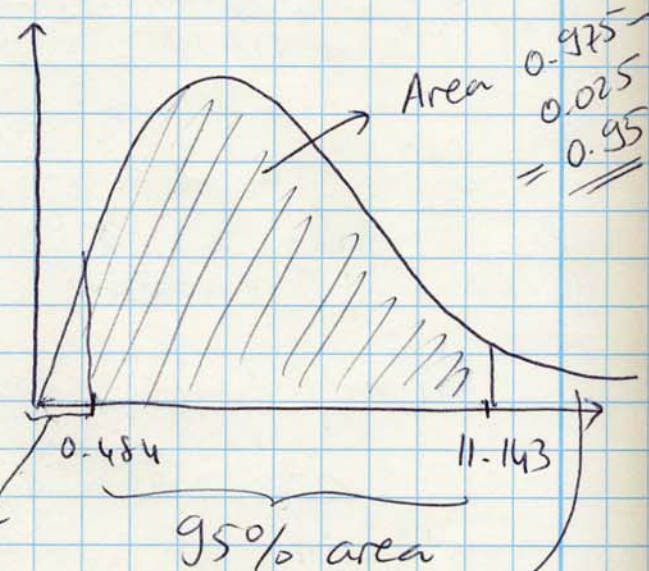 Area
0.975-
0.025
= 0.95
0.484
11.143
95% area